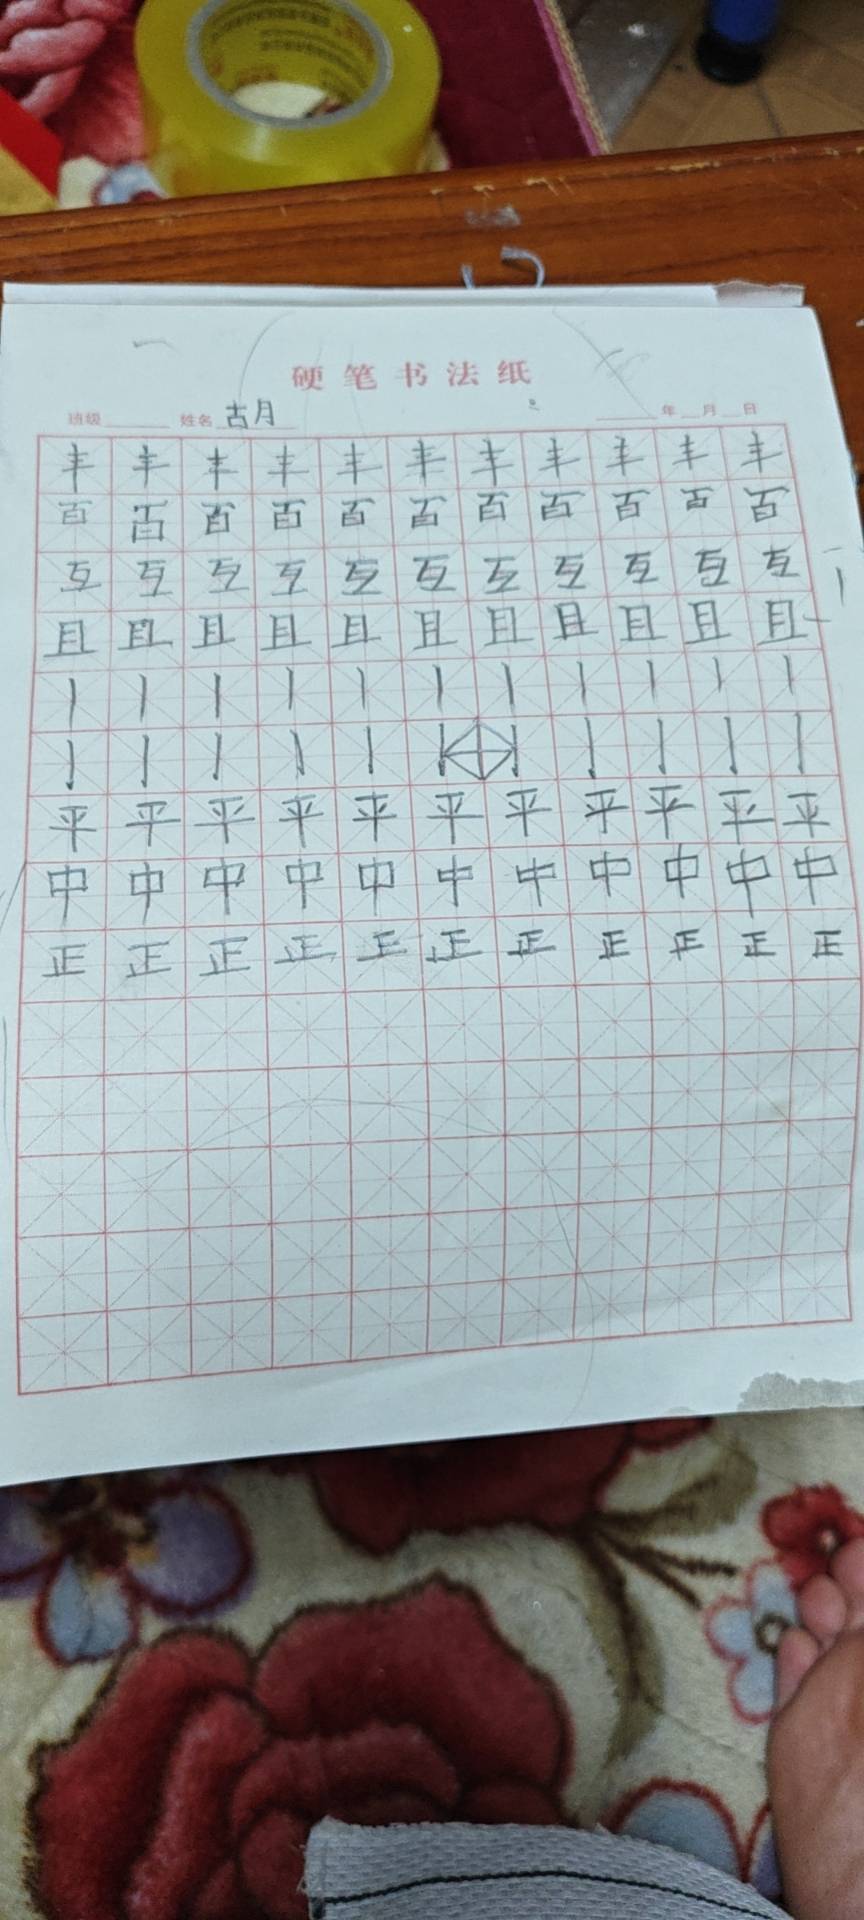 硬笔书法纸
班级 姓名 古月 年 月 日
丰丰丰丰丰丰丰丰丰丰丰
百百百百百百百百百百百
互互互互互互互互互互互
且且且且且且且且且且且
丨丨丨丨丨丨丨丨丨丨丨
丨丨丨丨丨丨丨丨丨丨丨
平平平平平平平平平平平
中中中中中中中中中中中
正正正正正正正正正正正